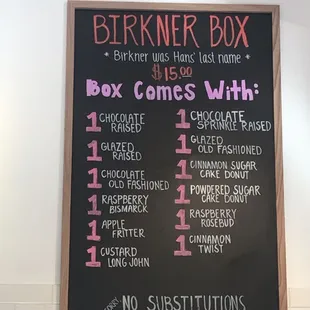 BIRKNER BOX
• Birkner was Hans' last name •
$15.00
Box Comes With:
1 CHOCOLATE RAISED
1 GLAZED RAISED
1 CHOCOLATE OLD FASHIONED
1 RASPBERRY BISMARCK
1 APPLE FRITTER
1 CUSTARD LONG JOHN
1 CHOCOLATE SPRINKLE RAISED
1 GLAZED OLD FASHIONED
1 CINNAMON SUGAR CAKE DONUT
1 POWDERED SUGAR CAKE DONUT
1 RASPBERRY ROSEBUD
1 CINNAMON TWIST
NO SUBSTITUTIONS